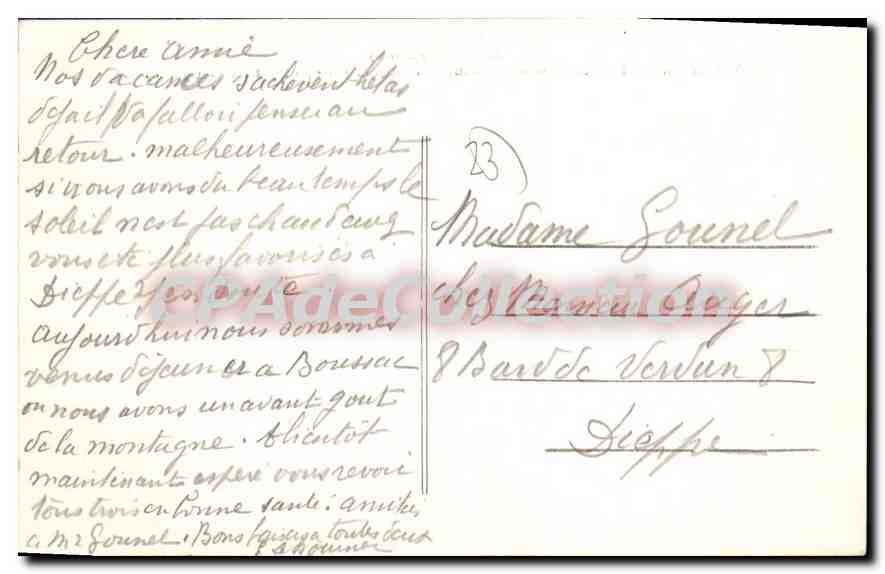 Chere amie
Nos vacances s'achevent helas
deja il va falloir penser au
retour. malheureusement
si nous avons du beau temps le
soleil n'est pas chaud avez
vous ete plus favorisés a
Dieppe
aujourd'hui nous sommes
venus déjeuner a Boussac
ou nous avons un avant gout
de la montagne. A bientôt
maintenant espere vous revoir
tous trois en bonne santé. amities
a Mr Gounel. Bons baisers a toutes deux
23
Madame Gounel
chez Auger
8 Bard de Verdun 8
Dieppe
CPAdeCollection